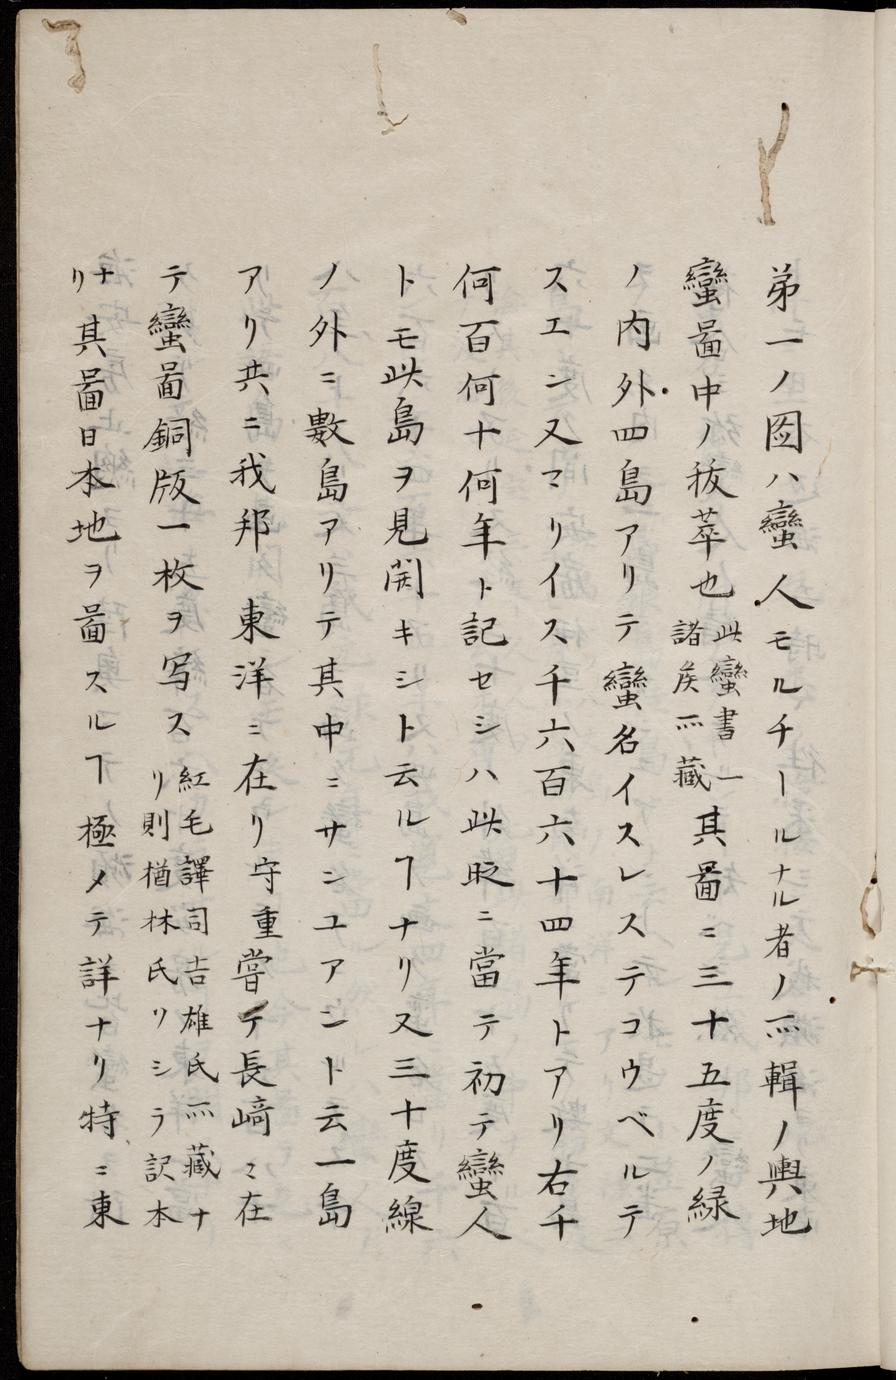 第一ノ図ハ蠻人モルチールナル者ノ所輯ノ輿地
蠻啚中ノ萃也此蠻書一諸矦所藏其啚ニ三十五度ノ緑
ノ内外四島アリテ蠻名イスレステコウベルテ
スエン又マリイス千六百六十四年トアリ右千
何百何十何年ト記セシハ此時ニ當テ初テ蠻人
トモ此島ヲ見開キシト云ルヿナリ又三十度線
ノ外ニ數島アリテ其中ニサンユアント云一島
アリ共ニ我邦 東洋ニ在リ守重嘗テ長﨑ニ在
テ蠻啚銅版一枚ヲ写ス紅毛譯司吉雄氏所藏ナリ則楢林氏リシラ訳本
ナリ其啚日本地ヲ啚スルヿ極メテ詳ナリ特ニ東